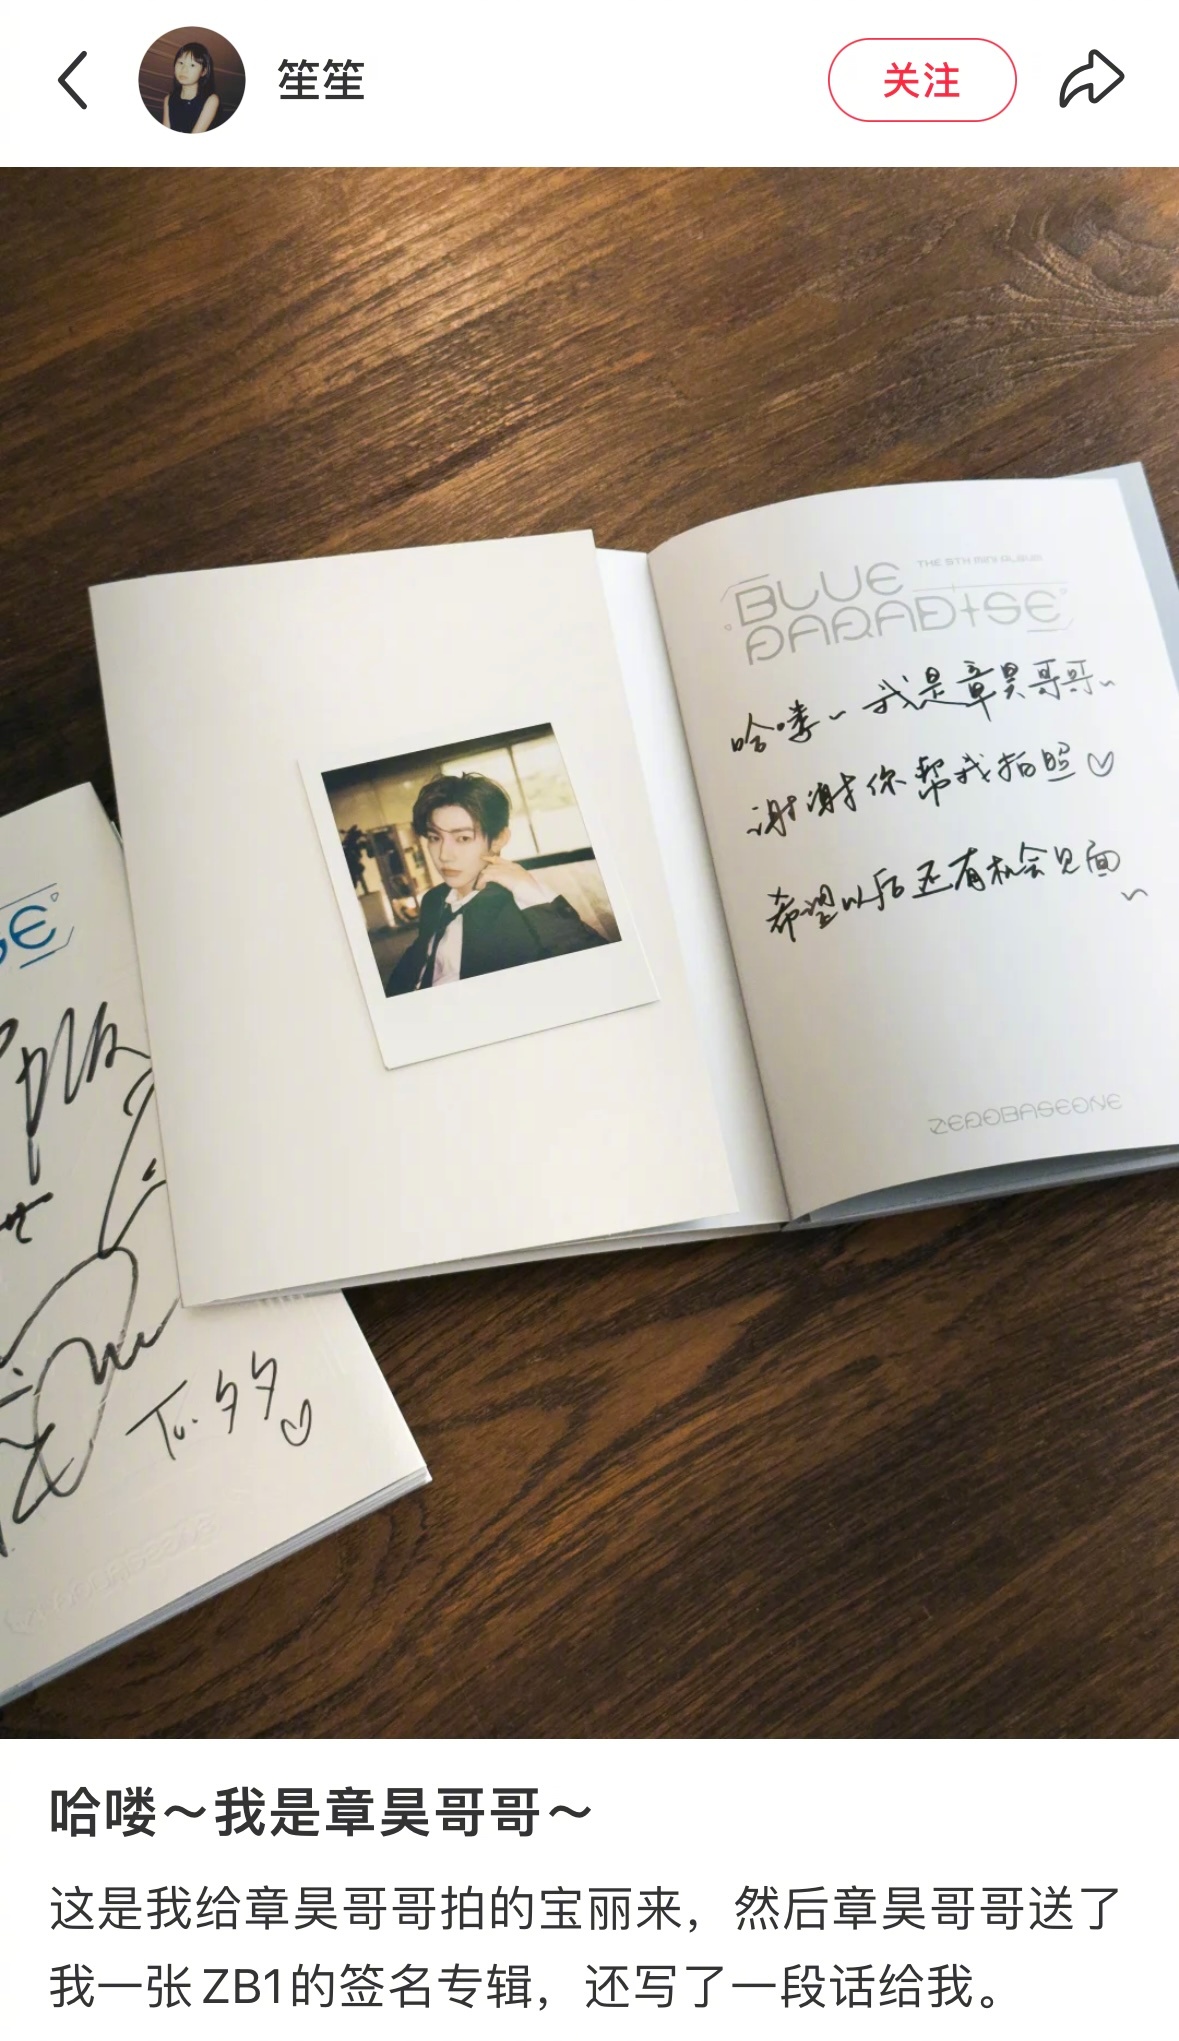 笙笙
关注
BLUE
THE 5TH MINI ALBUM
PARADISE
哈喽~我是章昊哥哥~
谢谢你帮我拍照♡
希望以后还有机会见面
~
ZEROBASEONE
SE
To.夕夕
♡
哈喽～我是章昊哥哥～
这是我给章昊哥哥拍的宝丽来，然后章昊哥哥送了
我一张 ZB1的签名专辑，还写了一段话给我。